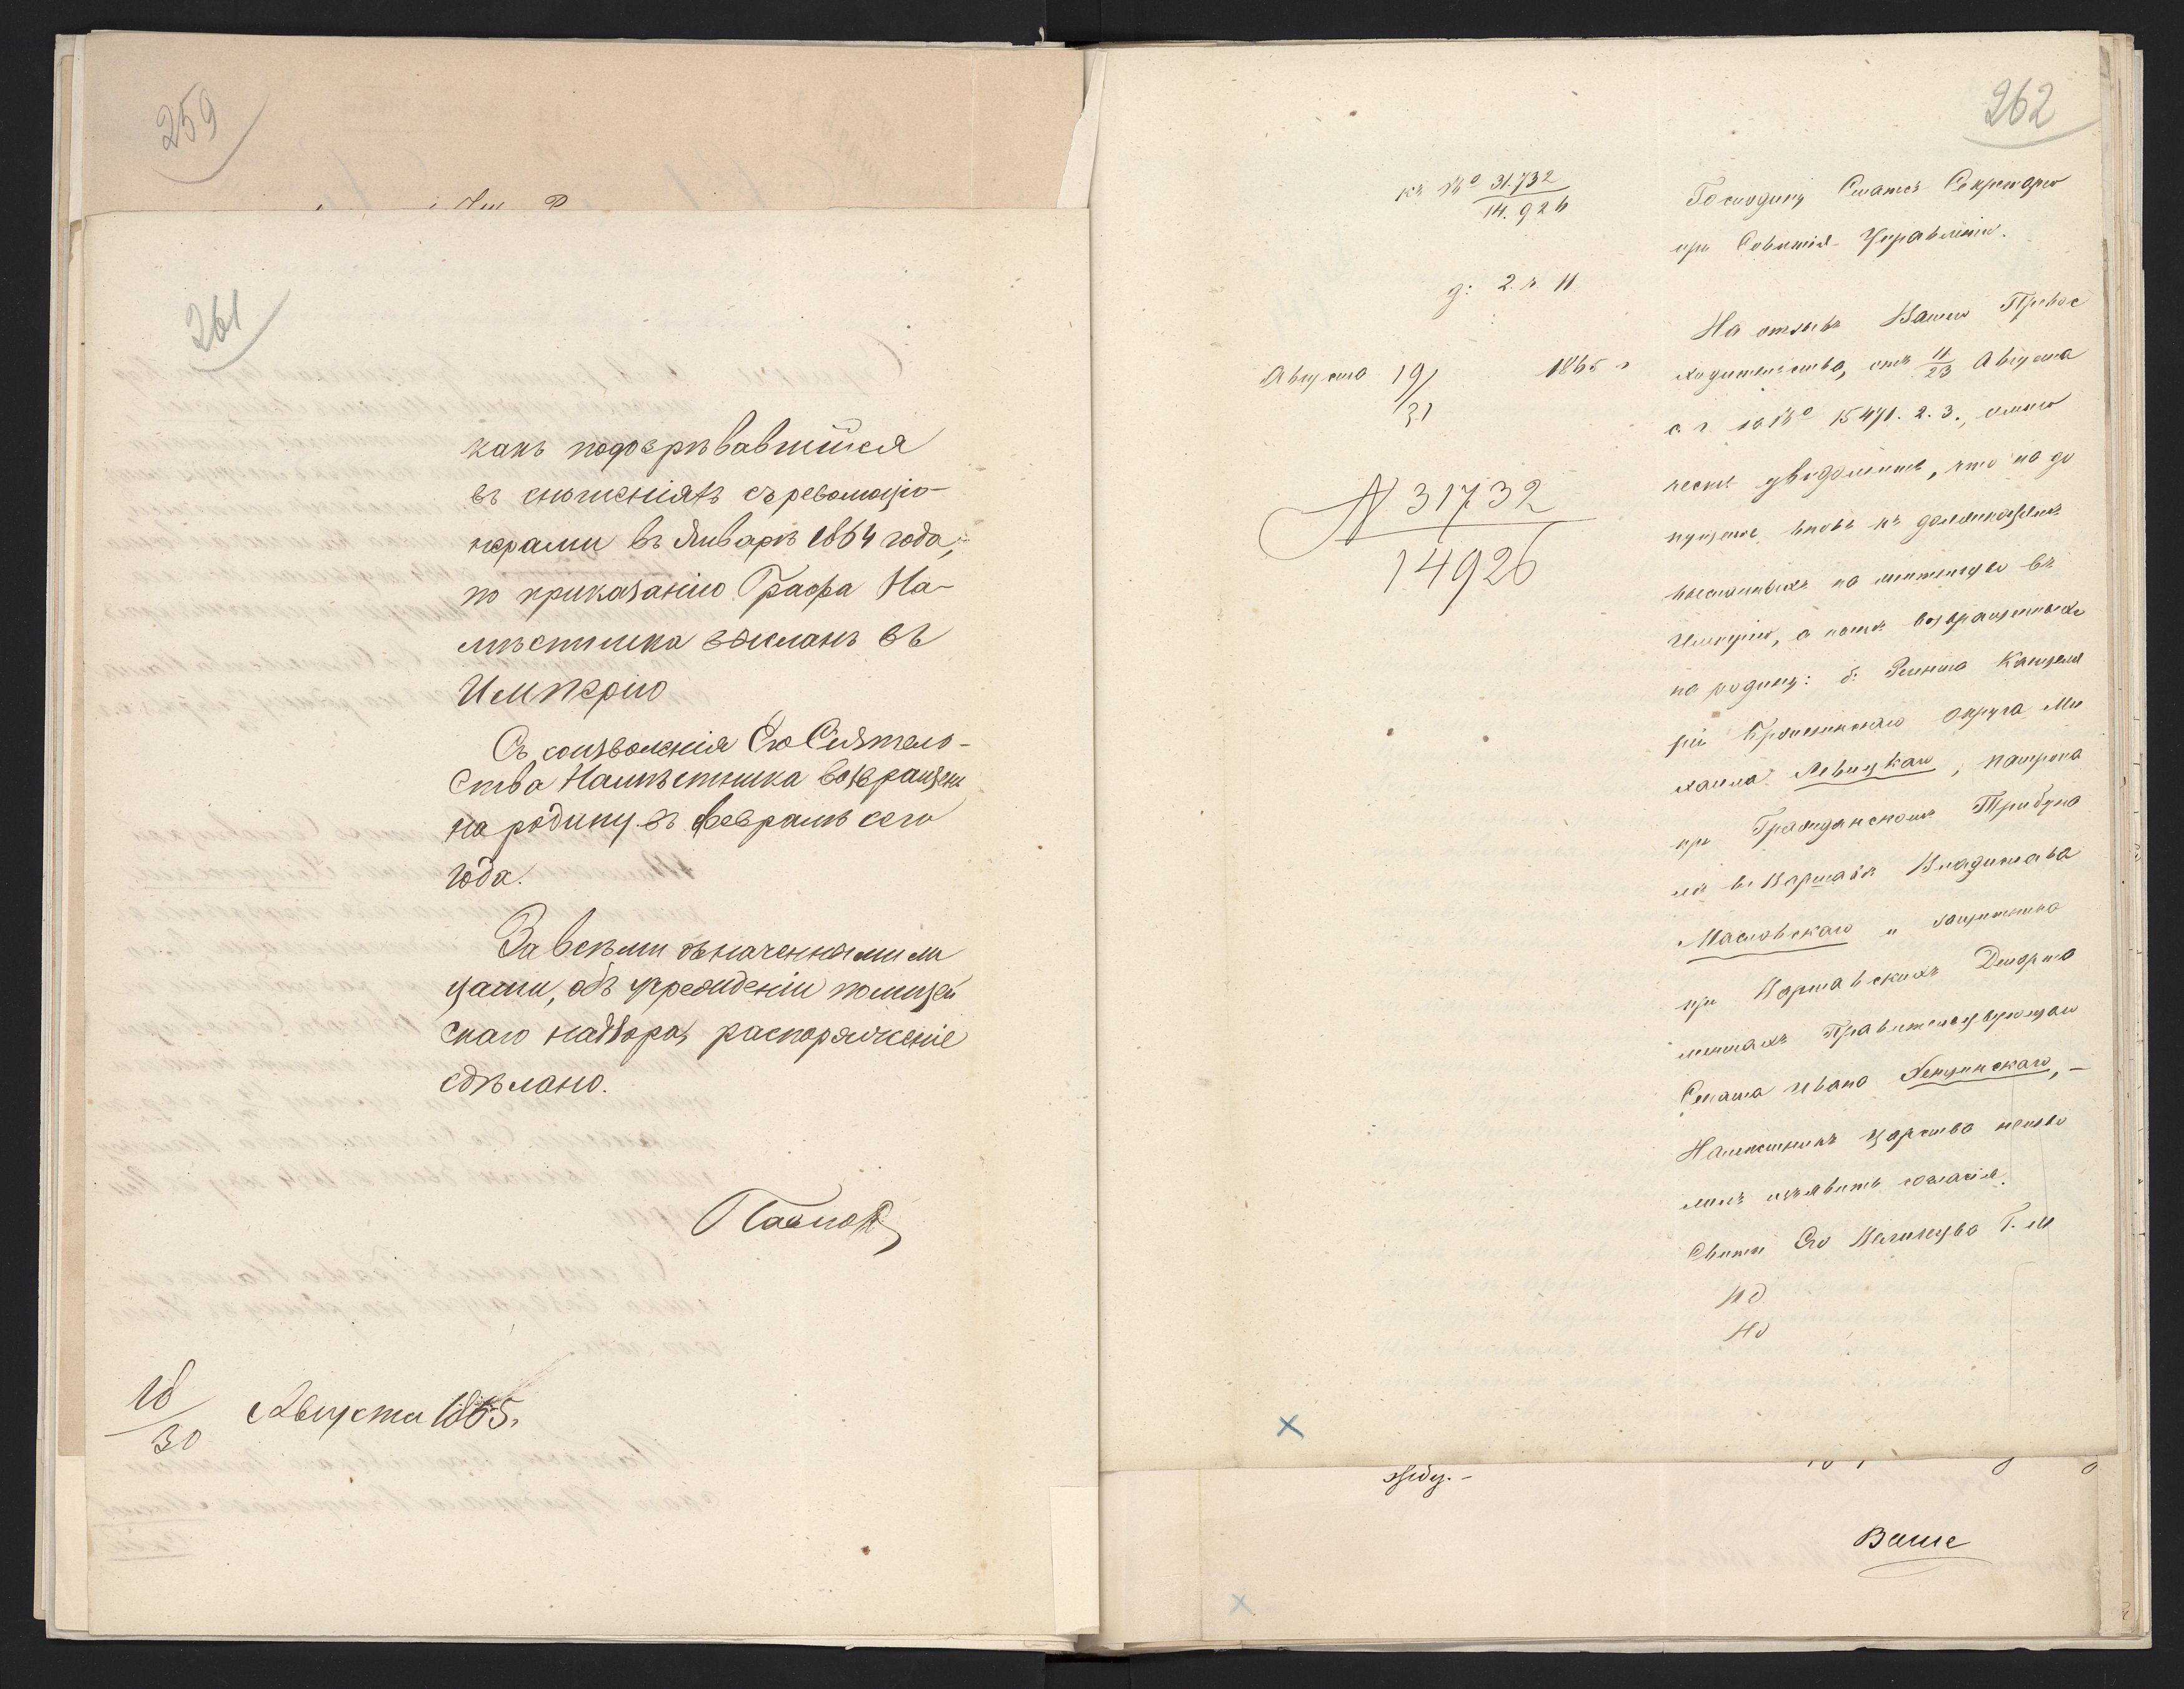 259
261
какъ подозрѣвавшійся
въ сношеніяхъ съ революціо-
нерами въ Январѣ 1864 года,
по приказанію Графа На-
мѣстника высланъ въ
Имперію
Съ соизволенія Его Сіятель-
ства Намѣстника возвращенъ
на родину въ Февралѣ сего
года.
За всѣми означенными ли
цами, объ учрежденіи полицей
скаго надзора, распоряженіе
сдѣлано.
18/30 Августа 1865.
262
къ № 31.732
14.926
д: 2. к. 11
Августа 19/31 1865 г
N 31732
14926
Господину Статсъ Секретарю
при Совѣтѣ Управленія.
На отзывъ Вашего Превос
ходительства, отъ 11/23 Августа
с. г. за № 15471. 2. 3., имѣю
честь увѣдомить, что на до
пущеніе вновь къ должностямъ
высланныхъ на жительство въ
Имперію, а нынѣ возвращенныхъ
на родину: б: Рента Канцеля
ріи Михаила Левицкаго, патрона
при Гражданскомъ Трибуна
лѣ въ Варшавѣ Владислава
Масловскаго и защитника
при Варшавскихъ Департа
ментахъ Правительствующаго
Сената Ивана
Намѣстникъ Царства неизво
лилъ изъявить согласія.
Свиты Его Величества Г. М
Ваше